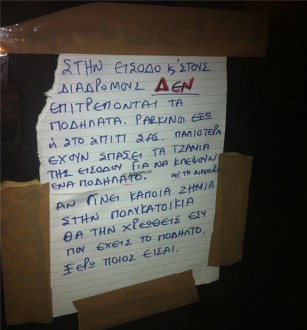 ΣΤΗΝ ΕΙΣΟΔΟ Κ' ΣΤΟΥΣ
ΔΙΑΔΡΟΜΟΥΣ ΔΕΝ
ΕΠΙΤΡΕΠΟΝΤΑΙ ΤΑ
ΠΟΔΗΛΑΤΑ. PARKING ΕΞΩ
Ή ΣΤΟ ΣΠΙΤΙ ΣΑΣ. ΠΑΛΙΟΤΕΡΑ
ΕΧΟΥΝ ΣΠΑΣΕΙ ΤΑ ΤΖΑΜΙΑ
ΤΗΣ ΕΙΣΟΔΟΥ ΓΙΑ ΝΑ ΚΛΕΨΟΥΝ
ΕΝΑ ΠΟΔΗΛΑΤΟ.
ΑΝ ΓΙΝΕΙ ΚΑΠΟΙΑ ΖΗΜΙΑ
ΣΤΗΝ ΠΟΛΥΚΑΤΟΙΚΙΑ
ΘΑ ΤΗΝ ΧΡΕΩΘΕΙΣ ΕΣΥ
ΠΟΥ ΕΧΕΙΣ ΤΟ ΠΟΔΗΛΑΤΟ.
ΞΕΡΩ ΠΟΙΟΣ ΕΙΣΑΙ.